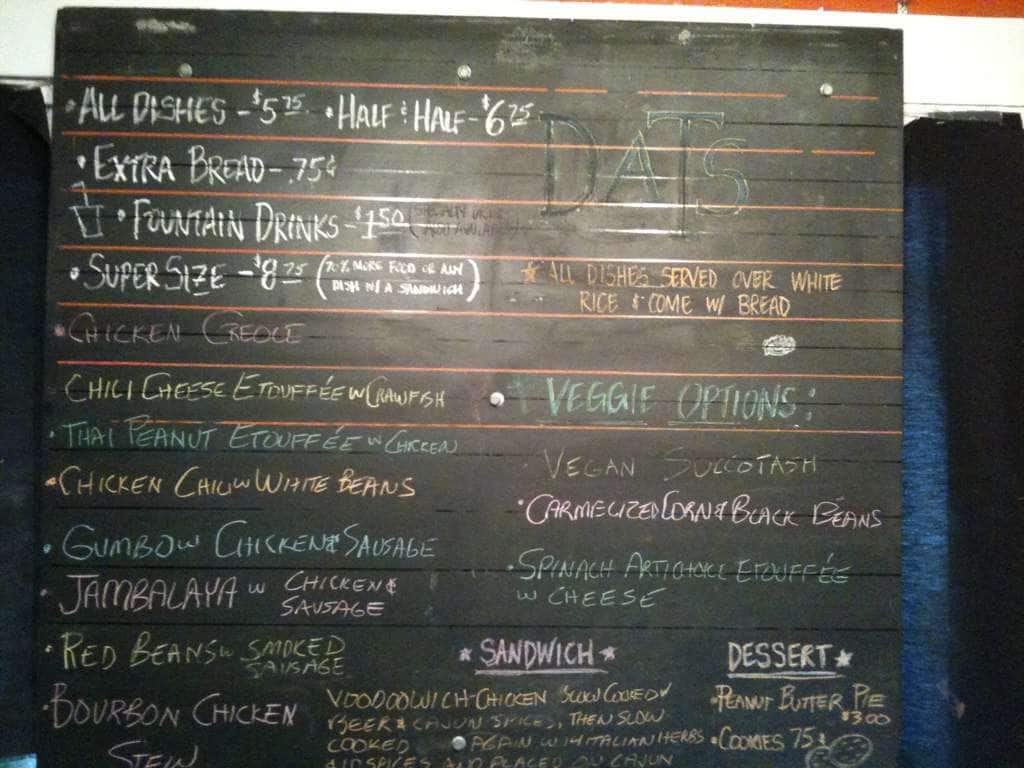 • ALL DISHES - $5.75 • HALF & HALF - $6.25
• EXTRA BREAD - .75¢
• FOUNTAIN DRINKS - $1.50
• SUPER SIZE - $8.75 (70% MORE FOOD OR ANY
DISH W/ A SANDWICH)
DATS
★ ALL DISHES SERVED OVER WHITE
RICE & COME W/ BREAD
• CHICKEN CREOLE
CHILI CHEESE ETOUFFÉE W CRAWFISH
• THAI PEANUT ETOUFFÉE W CHICKEN
• CHICKEN CHILI W WHITE BEANS
• GUMBO W CHICKEN & SAUSAGE
JAMBALAYA W CHICKEN &
SAUSAGE
• RED BEANS W SMOKED
SAUSAGE
• BOURBON CHICKEN
STEW
VEGGIE OPTIONS:
VEGAN SUCCOTASH
• CARMELIZED CORN & BLACK BEANS
• SPINACH ARTICHOKE ETOUFFÉE
W CHEESE
★ SANDWICH ★
VOODOOWICH - CHICKEN SLOW COOKED W
BEER & CAJUN SPICES, THEN SLOW
COOKED AGAIN W ITALIAN HERBS
AND SPICES AND PLACED ON CAJUN
DESSERT ★
• PEANUT BUTTER PIE
$3.00
• COOKIES 75¢